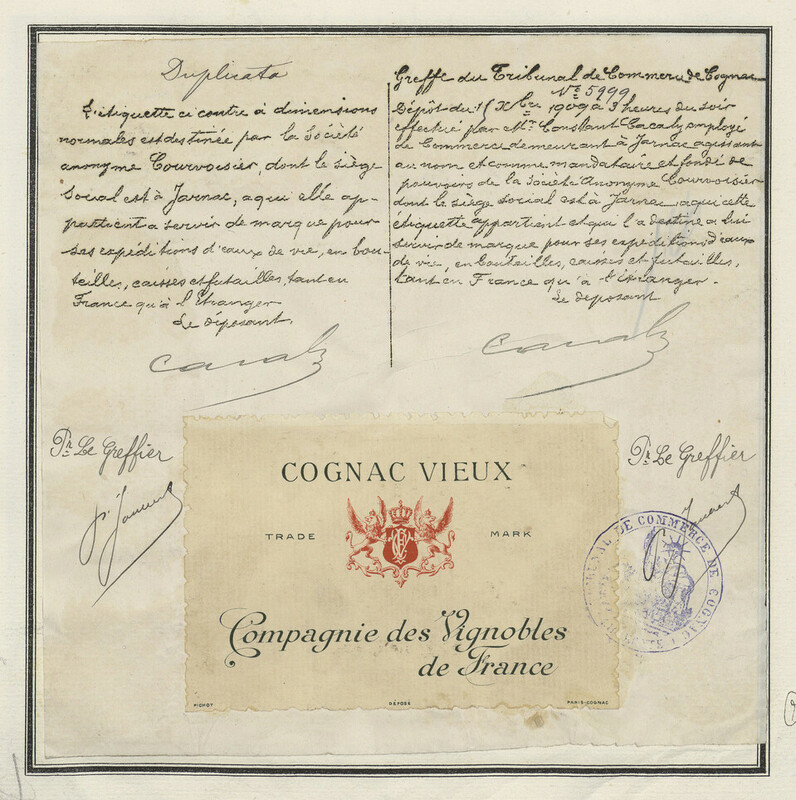 Duplicata
L'étiquette ci contre à dimensions
normales est destinée par la Société
anonyme Courvoisier, dont le siège
social est à Jarnac, a qui elle ap-
partient a servir de marque pour
ses expéditions d'eaux de vie, en bou-
teilles, caisses et futailles, tant en
France qu'à l'Etranger
Le déposant.
Greffe du Tribunal de Commerce de Cognac
No 5999
Dépôt du 11 Xbre 1909 à 3 heures du soir
effectué par Mr. Constant Cacaly employé
de Commerce demeurant à Jarnac agissant
au nom et comme mandataire et fondé de
pouvoirs de la Société Anonyme Courvoisier
dont le siège social est à Jarnac, a qui cette
étiquette appartient et qui l'a destine a lui
servir de marque pour ses expéditions d'eaux
de vie, en bouteilles, caisses et futailles,
tant en France qu'à l'étranger.
Le déposant
Pr. Le Greffier
Pr. Le Greffier
COGNAC VIEUX
TRADE MARK
Compagnie des Vignobles
de France
PICHOT DÉPOSÉ PARIS-COGNAC
TRIBUNAL DE COMMERCE DE COGNAC